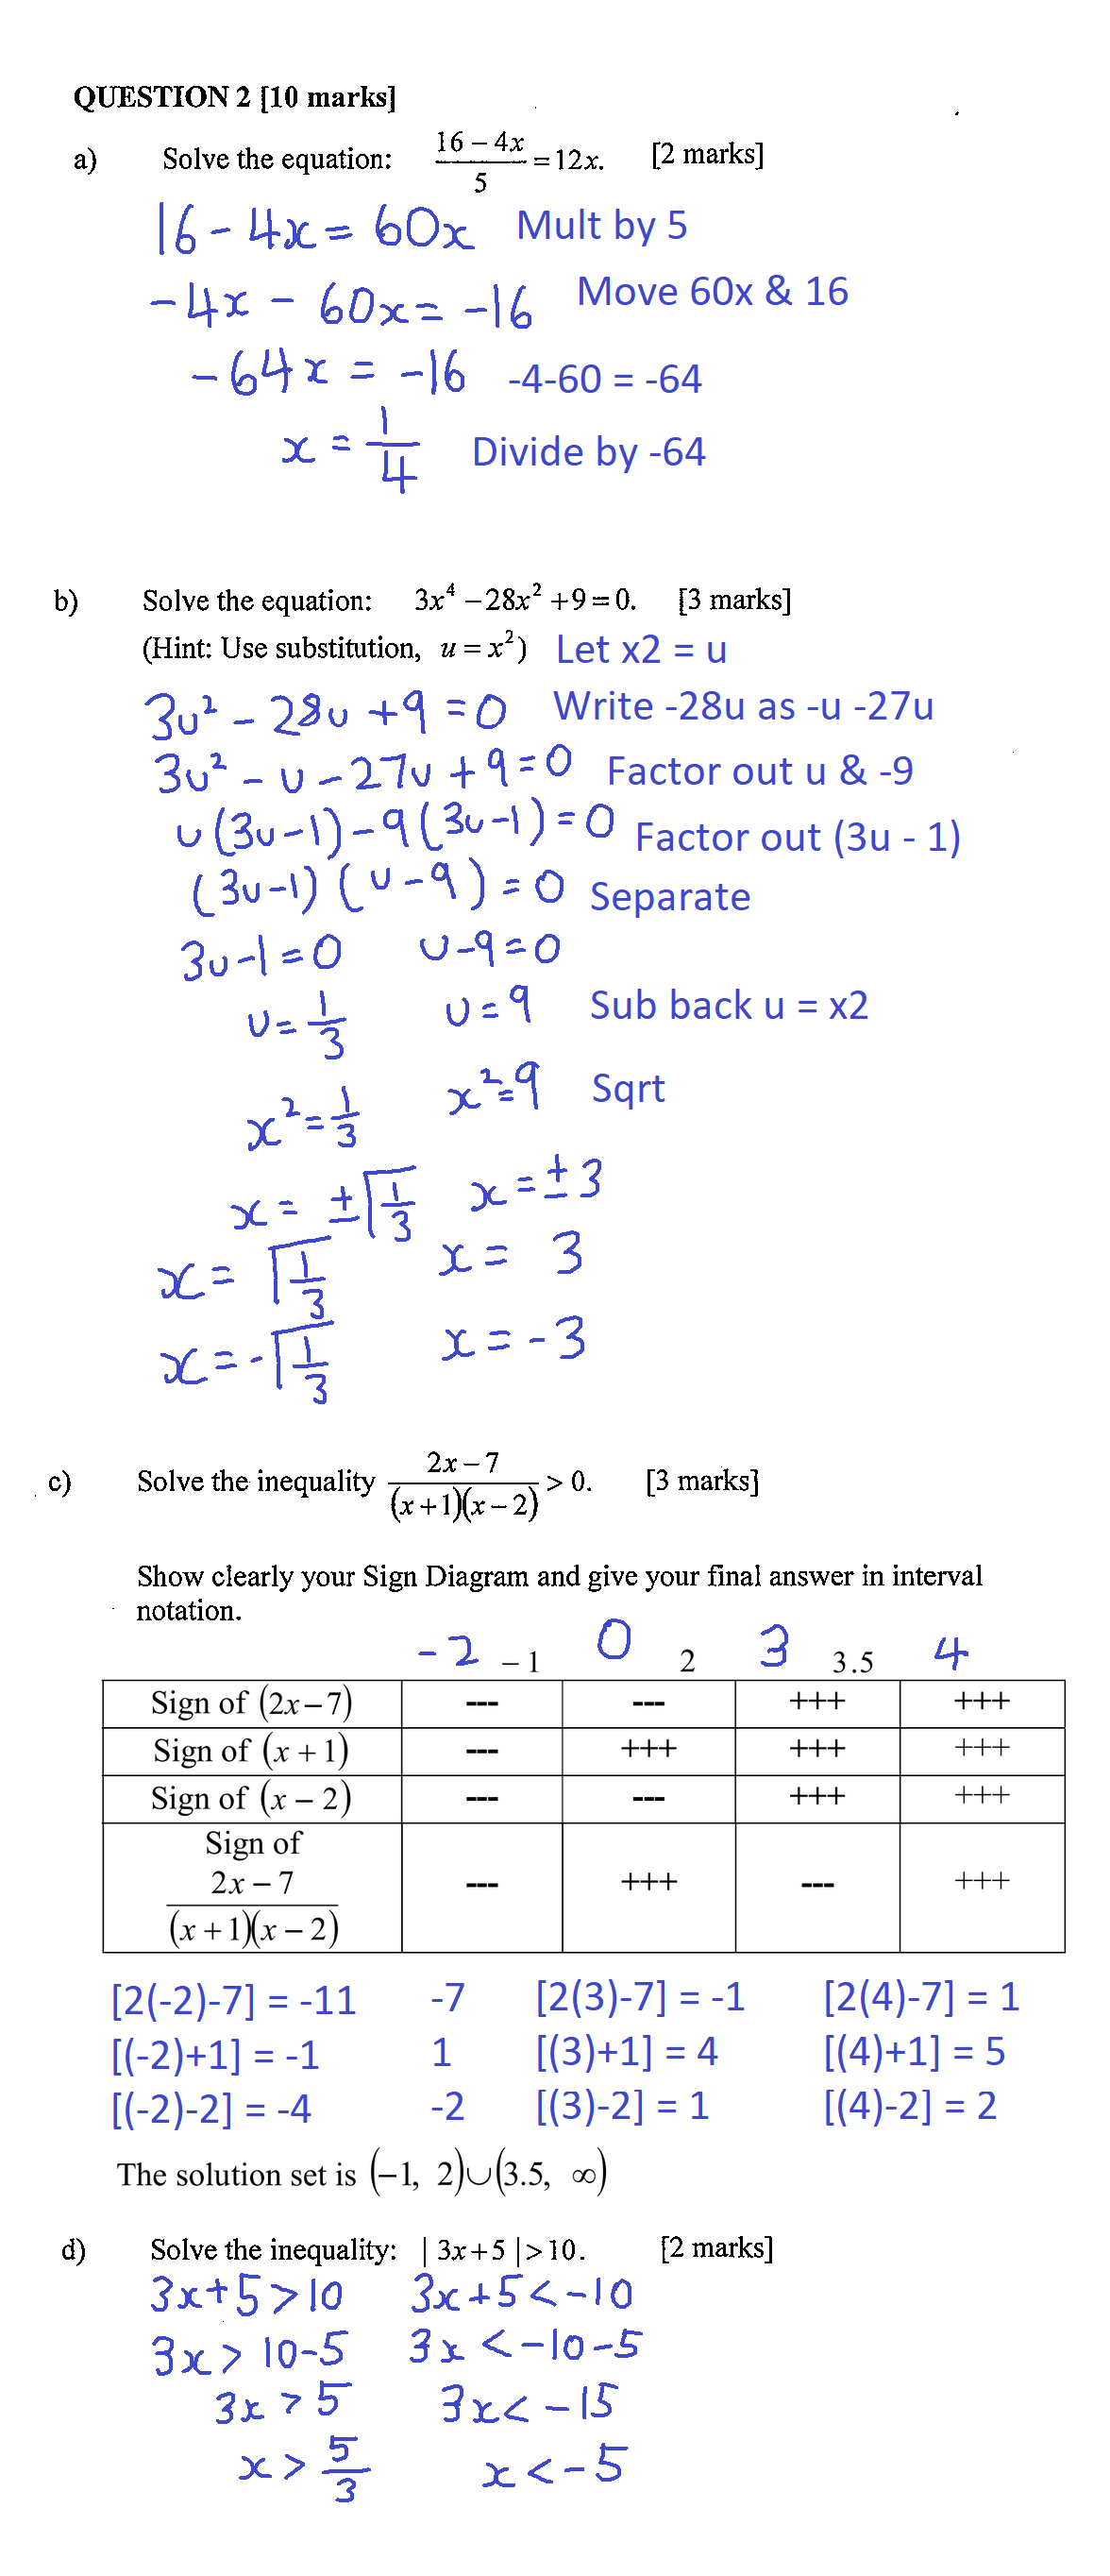 QUESTION 2 [10 marks]
a) Solve the equation: (16 − 4x)/5 = 12x. [2 marks]
16 - 4x = 60x Mult by 5
-4x - 60x = -16 Move 60x & 16
-64x = -16 -4-60 = -64
x = 1/4 Divide by -64
b) Solve the equation: 3x⁴ − 28x² + 9 = 0. [3 marks]
(Hint: Use substitution, u = x²) Let x2 = u
3u² - 28u + 9 = 0 Write -28u as -u -27u
3u² - u - 27u + 9 = 0 Factor out u & -9
u(3u-1) - 9(3u-1) = 0 Factor out (3u - 1)
(3u-1)(u-9) = 0 Separate
3u-1 = 0 u-9 = 0
u = 1/3 u = 9 Sub back u = x2
x² = 1/3 x² = 9 Sqrt
x = ±√(1/3) x = ±3
x = √(1/3) x = 3
x = -√(1/3) x = -3
c) Solve the inequality (2x − 7)/((x + 1)(x − 2)) > 0. [3 marks]
Show clearly your Sign Diagram and give your final answer in interval
notation.
-2 −1 0 2 3 3.5 4
Sign of (2x − 7) --- --- +++ +++
Sign of (x + 1) --- +++ +++ +++
Sign of (x − 2) --- --- +++ +++
Sign of
(2x − 7)/((x + 1)(x − 2)) --- +++ --- +++
[2(-2)-7] = -11 -7 [2(3)-7] = -1 [2(4)-7] = 1
[(-2)+1] = -1 1 [(3)+1] = 4 [(4)+1] = 5
[(-2)-2] = -4 -2 [(3)-2] = 1 [(4)-2] = 2
The solution set is (−1, 2)∪(3.5, ∞)
d) Solve the inequality: | 3x + 5 | > 10. [2 marks]
3x+5 > 10 3x+5 < -10
3x > 10-5 3x < -10-5
3x > 5 3x < -15
x > 5/3 x < -5